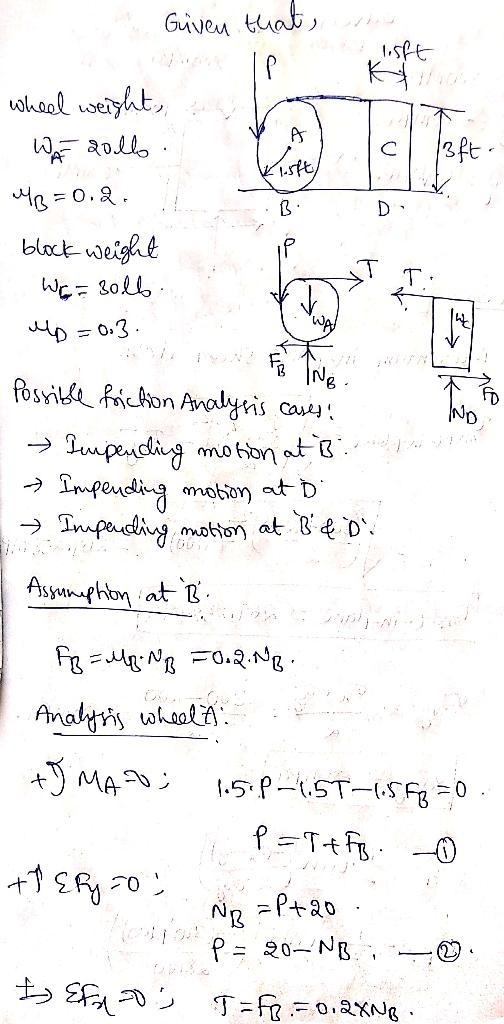 Given that,
P
1.5ft
wheel weight,
W_A = 20lb.
A
1.5ft
C
3ft.
μ_B = 0.2.
B.
D.
block weight
W_C = 30lb.
μ_D = 0.3.
P
T
T.
W_A
W_C
F_B
N_B.
F_D
N_D
Possible friction Analysis cases:
→ Impending motion at 'B'.
→ Impending motion at 'D'
→ Impending motion at 'B' & 'D'.
Assumption at 'B'.
F_B = μ_B·N_B = 0.2·N_B.
Analysis wheel 'A':
+↺ M_A = 0; 1.5·P - 1.5T - 1.5F_B = 0
P = T + F_B. —①
+↑ ΣF_y = 0; N_B = P + 20.
P = 20 - N_B. —②.
+→ ΣF_x = 0; T = F_B = 0.2×N_B.